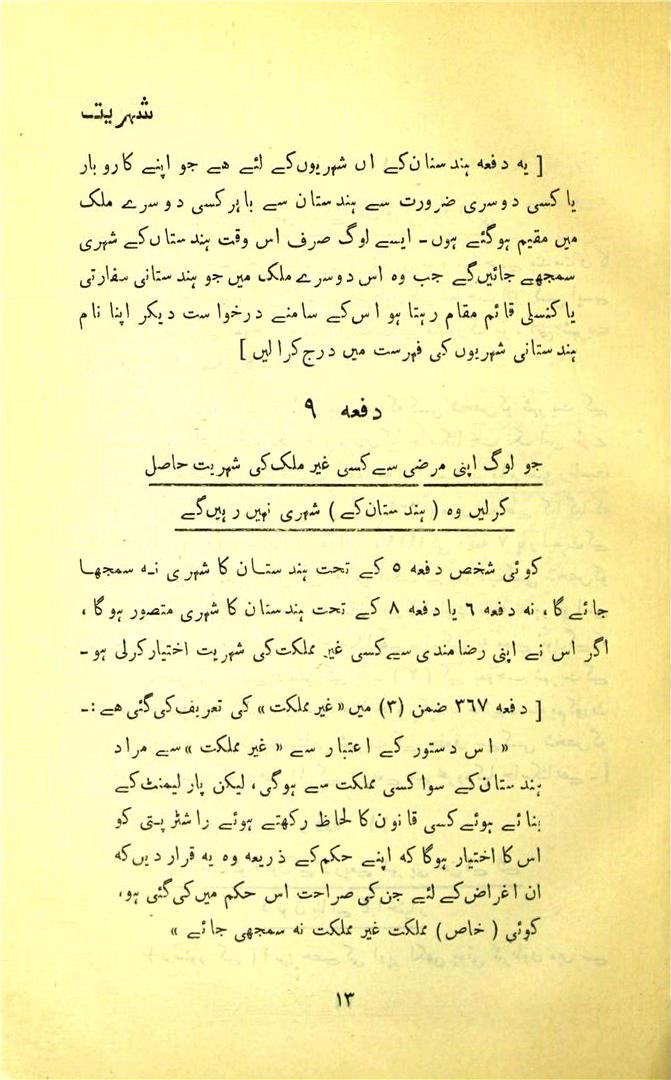 شہریت
[ یہ دفعہ ہندستان کے اں شہریوں کے لئے ہے جو اپنے کاروبار
یا کسی دوسری ضرورت سے ہندستان سے باہر کسی دوسرے ملک
میں مقیم ہوگئے ہوں ۔ ایسے لوگ صرف اس وقت ہندستاں کے شہری
سمجھے جائیں گے جب وہ اس دوسرے ملک میں جو ہندستانی سفارتی
یا کنسلی قائم مقام رہتا ہو اس کے سامنے درخواست دیکر اپنا نام
ہندستانی شہریوں کی فہرست میں درج کرالیں ]
دفعہ ۹
جو لوگ اپنی مرضی سے کسی غیر ملک کی شہریت حاصل
کرلیں وہ ( ہندستان کے ) شہری نہیں رہیں گے
کوئی شخص دفعہ ۵ کے تحت ہندستان کا شہری نہ سمجھا
جائے گا، نہ دفعہ ۶ یا دفعہ ۸ کے تحت ہندستان کا شہری متصور ہوگا،
اگر اس نے اپنی رضامندی سے کسی غیر مملکت کی شہریت اختیار کرلی ہو ۔
[ دفعہ ۳۶۷ ضمن (۳) میں «غیر مملکت» کی تعریف کی گئی ہے :۔
« اس دستور کے اعتبار سے « غیر مملکت » سے مراد
ہندستان کے سوا کسی مملکت سے ہوگی، لیکن پارلیمنٹ کے
بنائے ہوئے کسی قانون کا لحاظ رکھتے ہوئے راشٹرپتی کو
اس کا اختیار ہوگا کہ اپنے حکم کے ذریعہ وہ یہ قرار دیں کہ
ان اغراض کے لئے جن کی صراحت اس حکم میں کی گئی ہو،
کوئی ( خاص ) مملکت غیر مملکت نہ سمجھی جائے »
۱۳